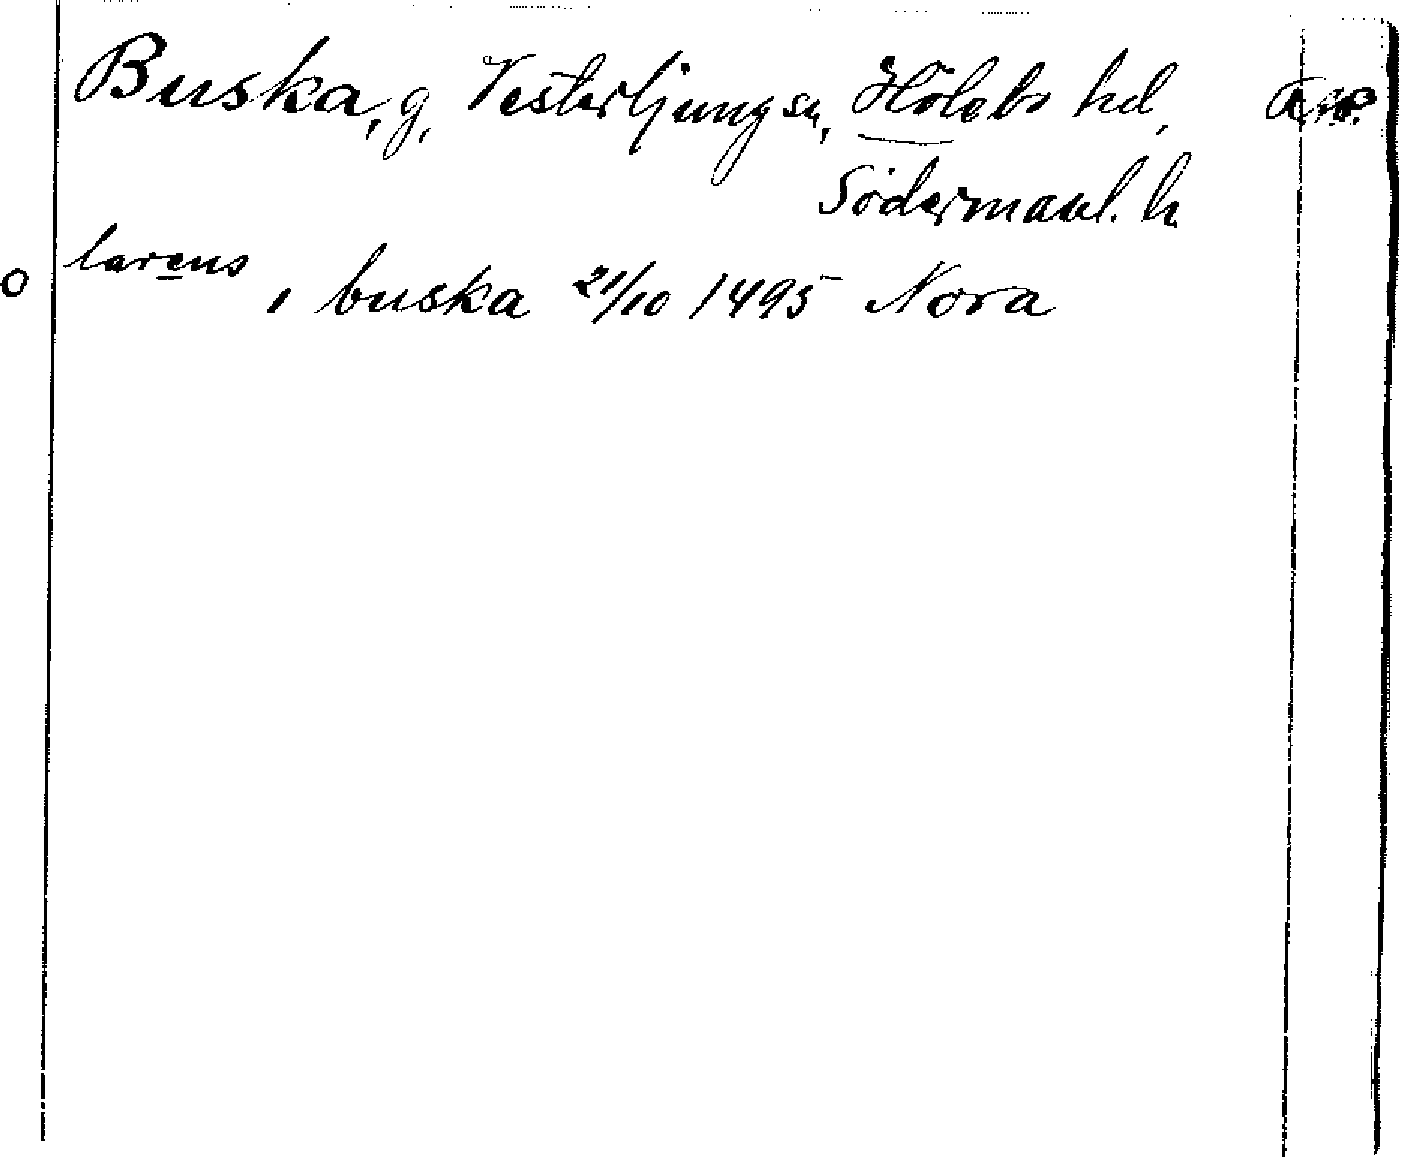 Buska, g, Vesterljung sn, Hölebo hd,
Södermanl. l.
larens
i buska 21/10 1495 Nora